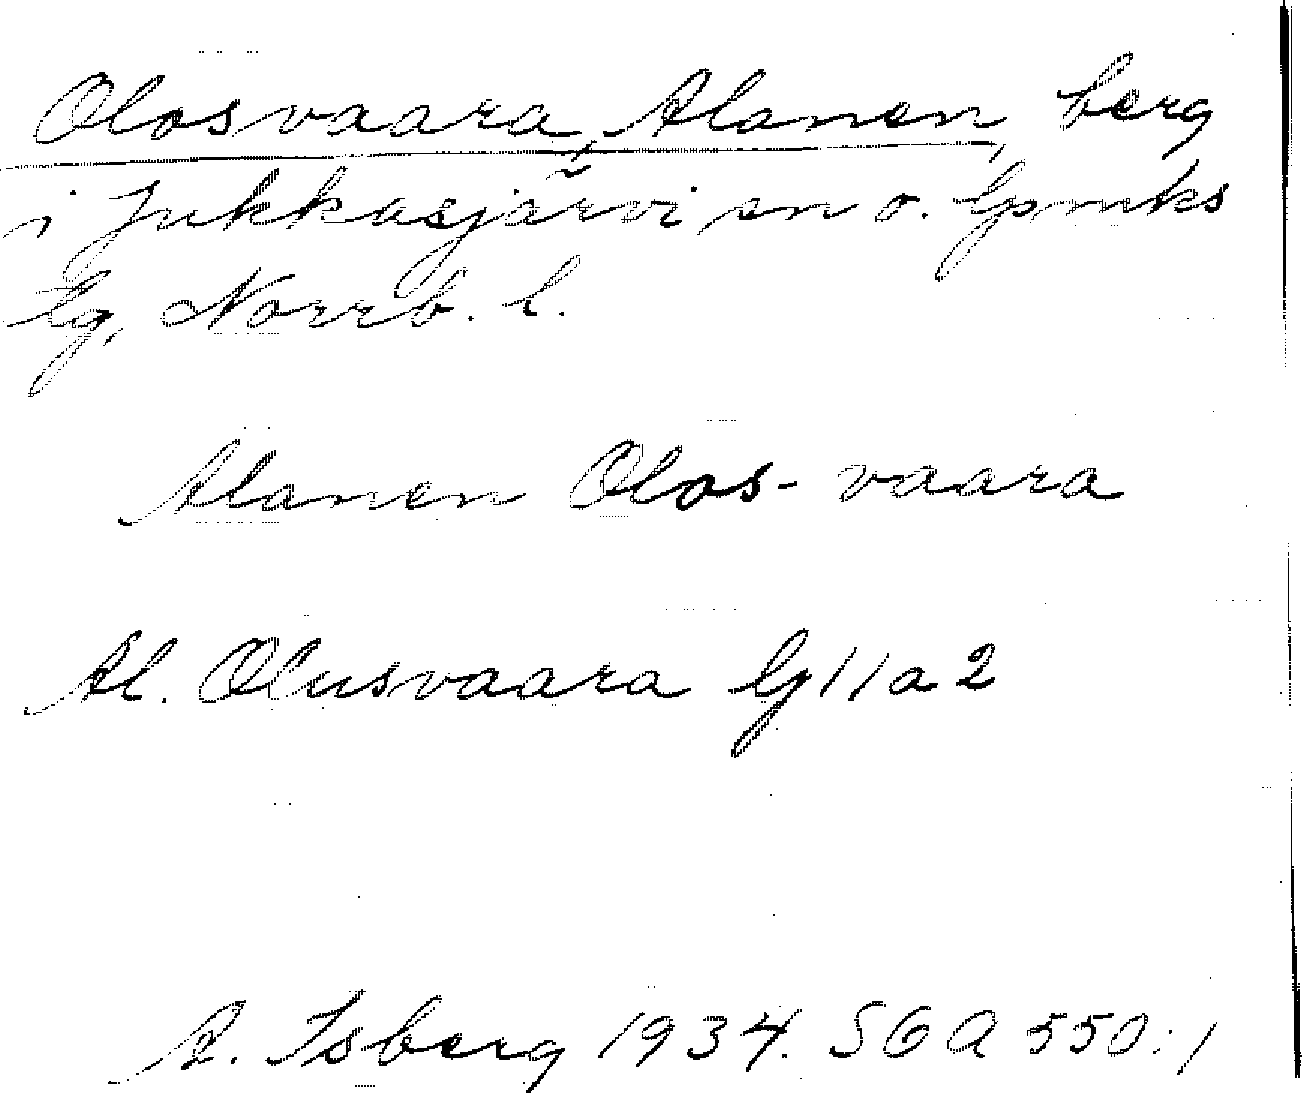 Olosvaara, Alanen, berg
i Jukkasjärvi sn o. lpmks
lg, Norrb. l.
Alanen Olos-vaara
Al. Olusvaara Gj 11 a 2
A. Isberg 1934. SGA 550:1